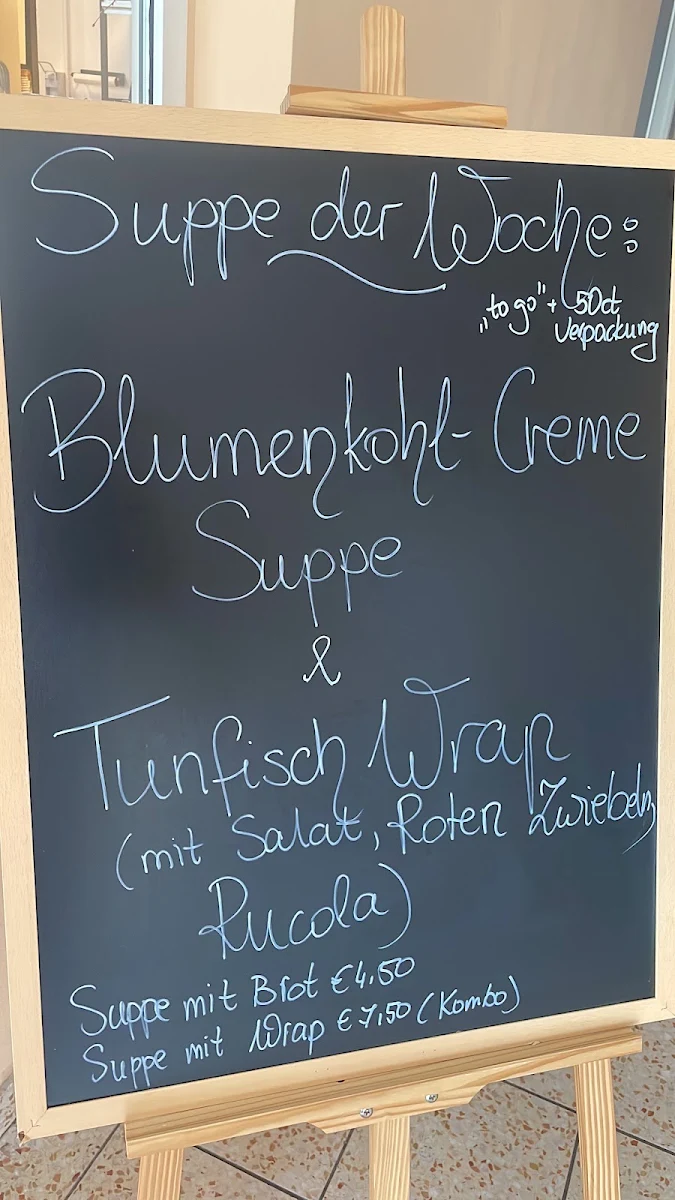 Suppe der Woche:
„to go" + 50ct
Verpackung
Blumenkohl-Creme
Suppe
&
Tunfisch Wrap
(mit Salat, Roten Zwiebeln,
Rucola)
Suppe mit Brot €4,50
Suppe mit Wrap €7,50 (Kombo)